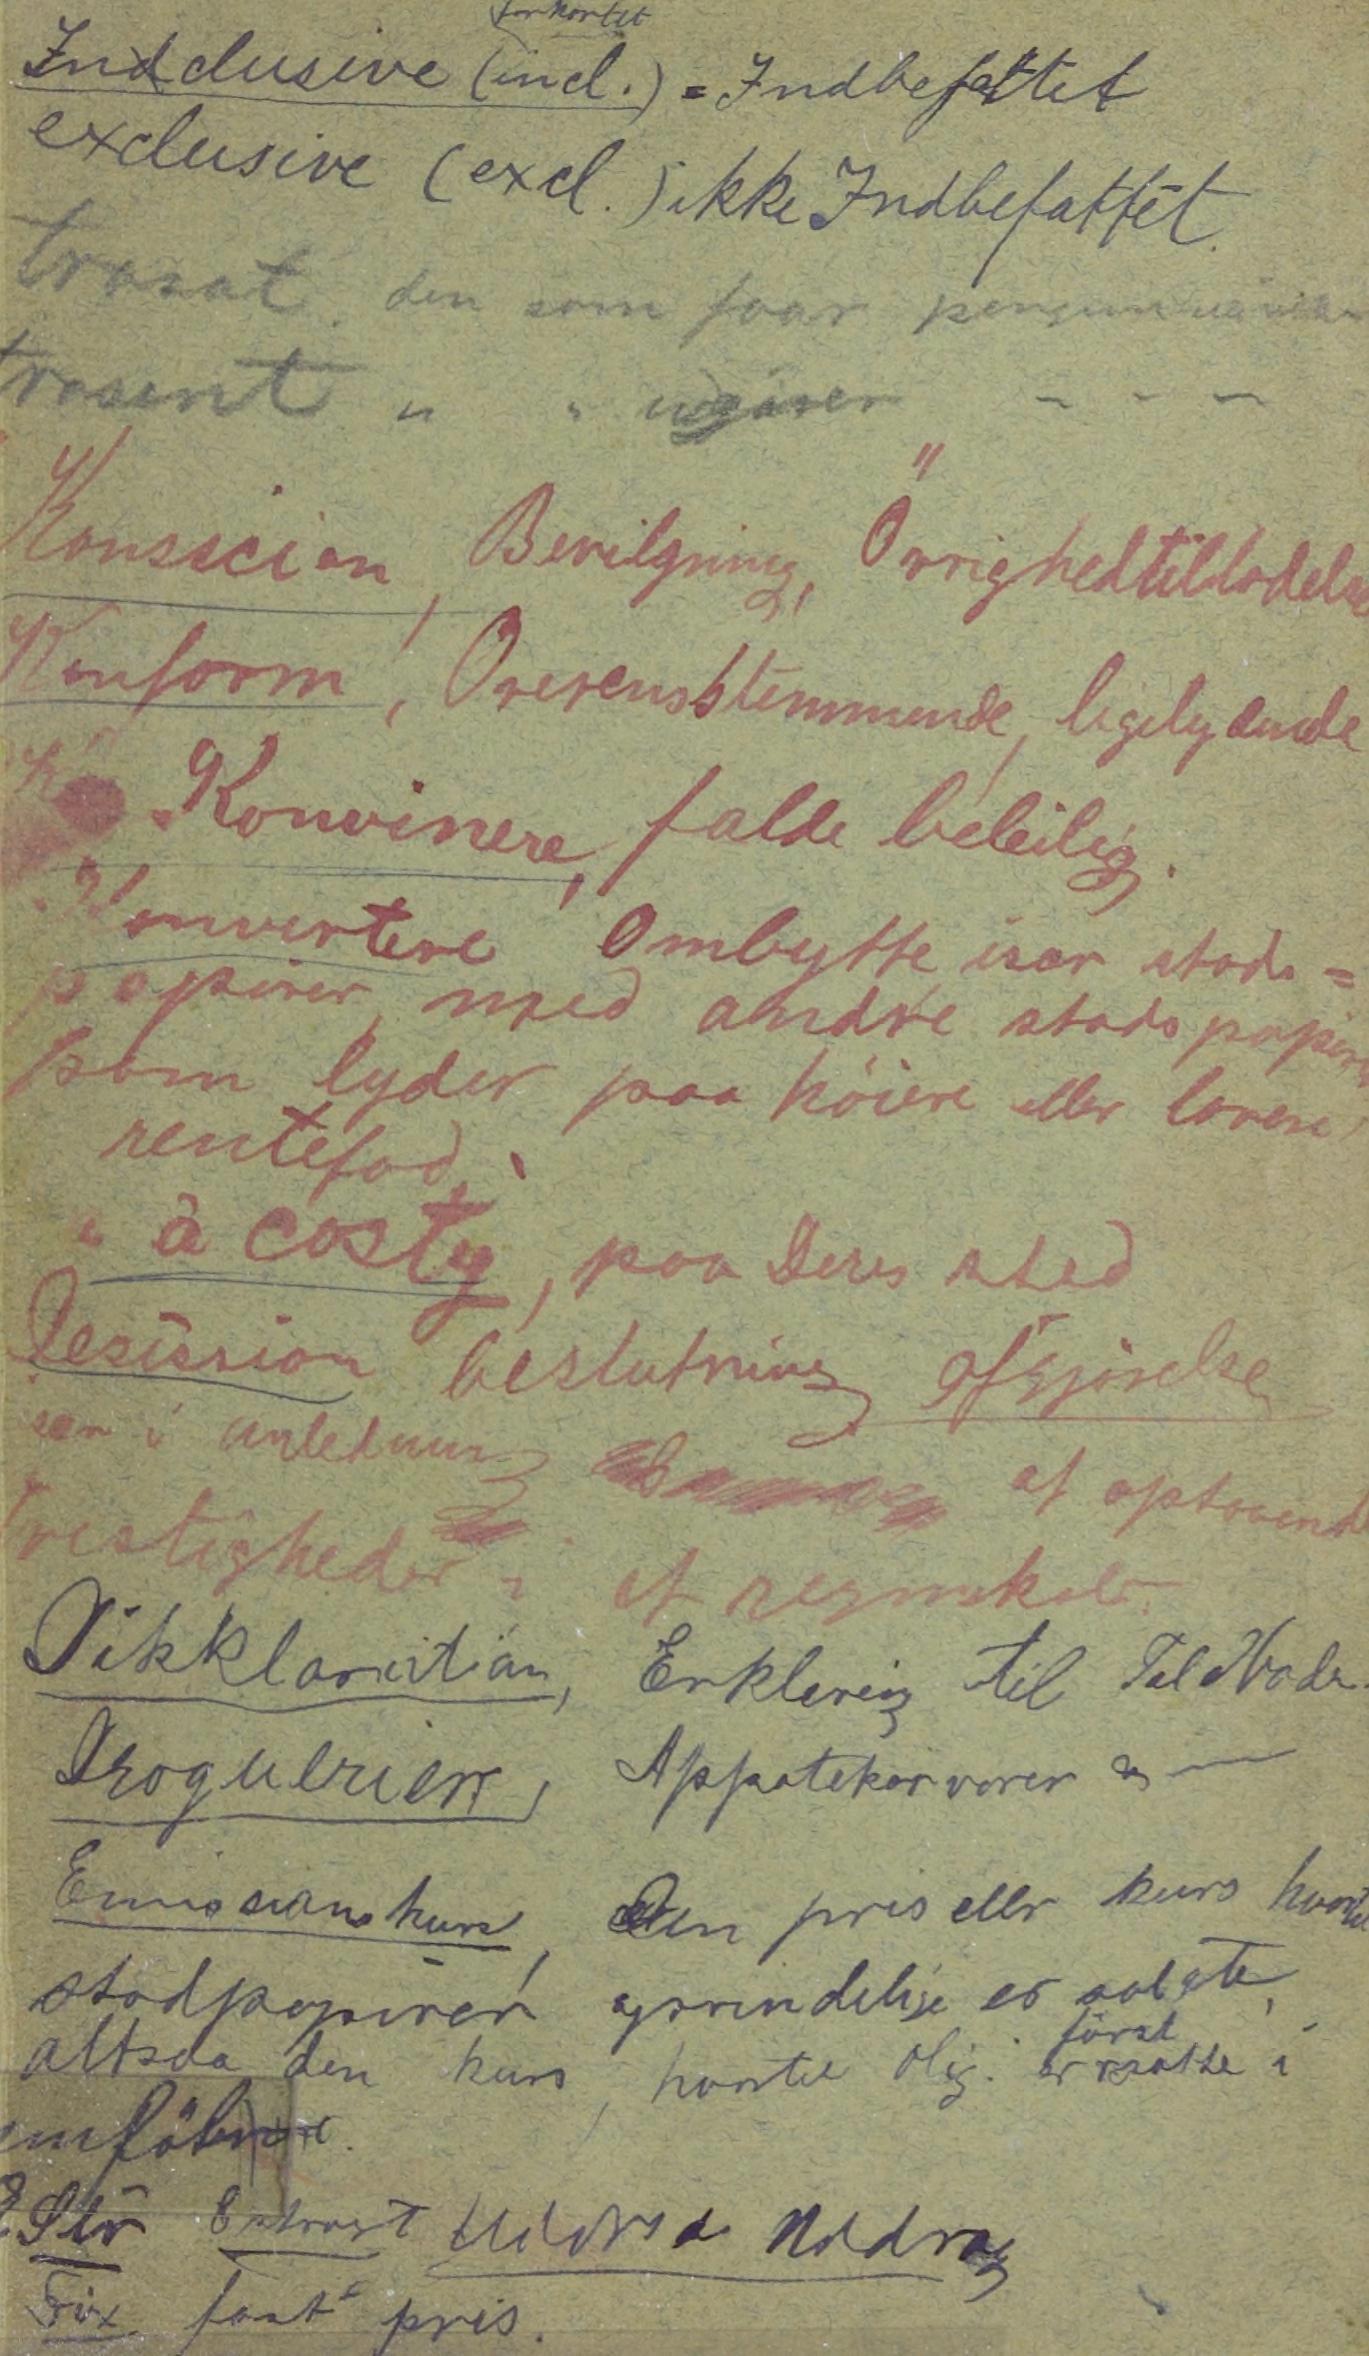 forkortet
Indclusive (incl.) = Indbefattet
exclusive (excl.) ikke Indbefattet.
trasat. den som faar
trasent " " - - -
Konsecion, Bevilgning, Övrighedtilladelse
Konform, Overensstemmende, ligelydende
Konvinere, falde beleilig.
Konvertere Ombytte især stads=
papirer med andre stadspapirer
som lyder paa höiere eller lavere
rentefod.
à costy, paa Deres sted
Desission beslutning afgjörelse
i anledning af
vrestigheder i et regnskab.
Dikklaration, Erklering til
Droguerier, Appotekervarer
Emissionskurs, Den pris eller kurs hvortil
stadpapirer oprindelige er solgte,
först
altsaa den kurs, hvortil er satte i
omföb
Extrast
Fix fast pris.